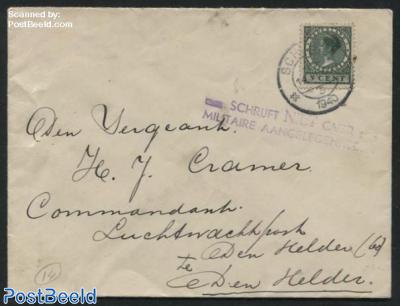 copyright
www.PostBeeld.com
V CENT
1940
SCHRIJFT NIET OVER
MILITAIRE AANGELEGENH
Den Sergeant
H. J. Cramer
Commandant
Luchtwachtpost
Den Helder
te
Den Helder.
(14)
PostBeeld